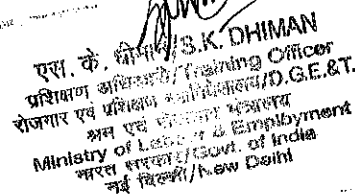 एस. के. धीमान/S.K. DHIMAN
प्रशिक्षण अधिकारी/Training Officer
रोजगार एवं प्रशिक्षण महानिदेशालय/D.G.E.&T.
श्रम एवं रोजगार मंत्रालय
Ministry of Labour & Employment
भारत सरकार/Govt. of India
नई दिल्ली/New Delhi